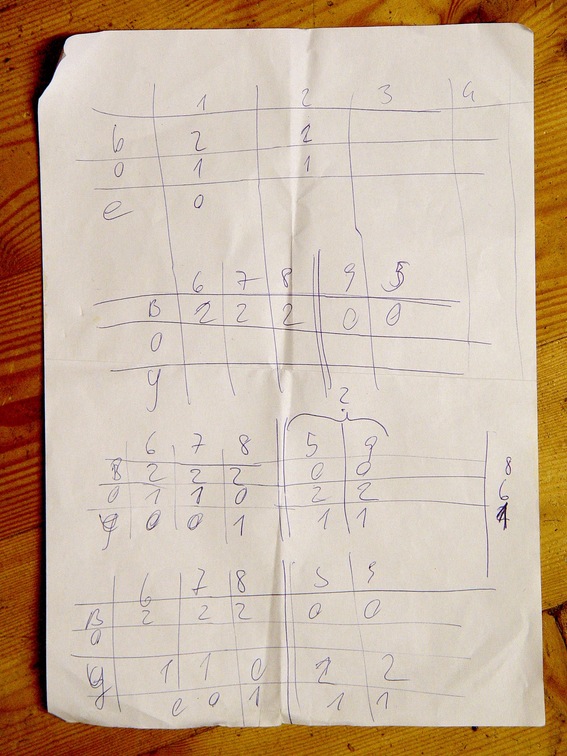 1 2 3 4
b 2 2
0 1 1
e 0
6 7 8 9 5
B 2 2 2 0 0
0
y
2
6 7 8 5 9
B 2 2 2 0 0 8
0 1 1 0 2 2 6
y 0 0 1 1 1
6 7 8 5 9
B 2 2 2 0 0
0
y 1 1 0 2 2
0 1 1 1